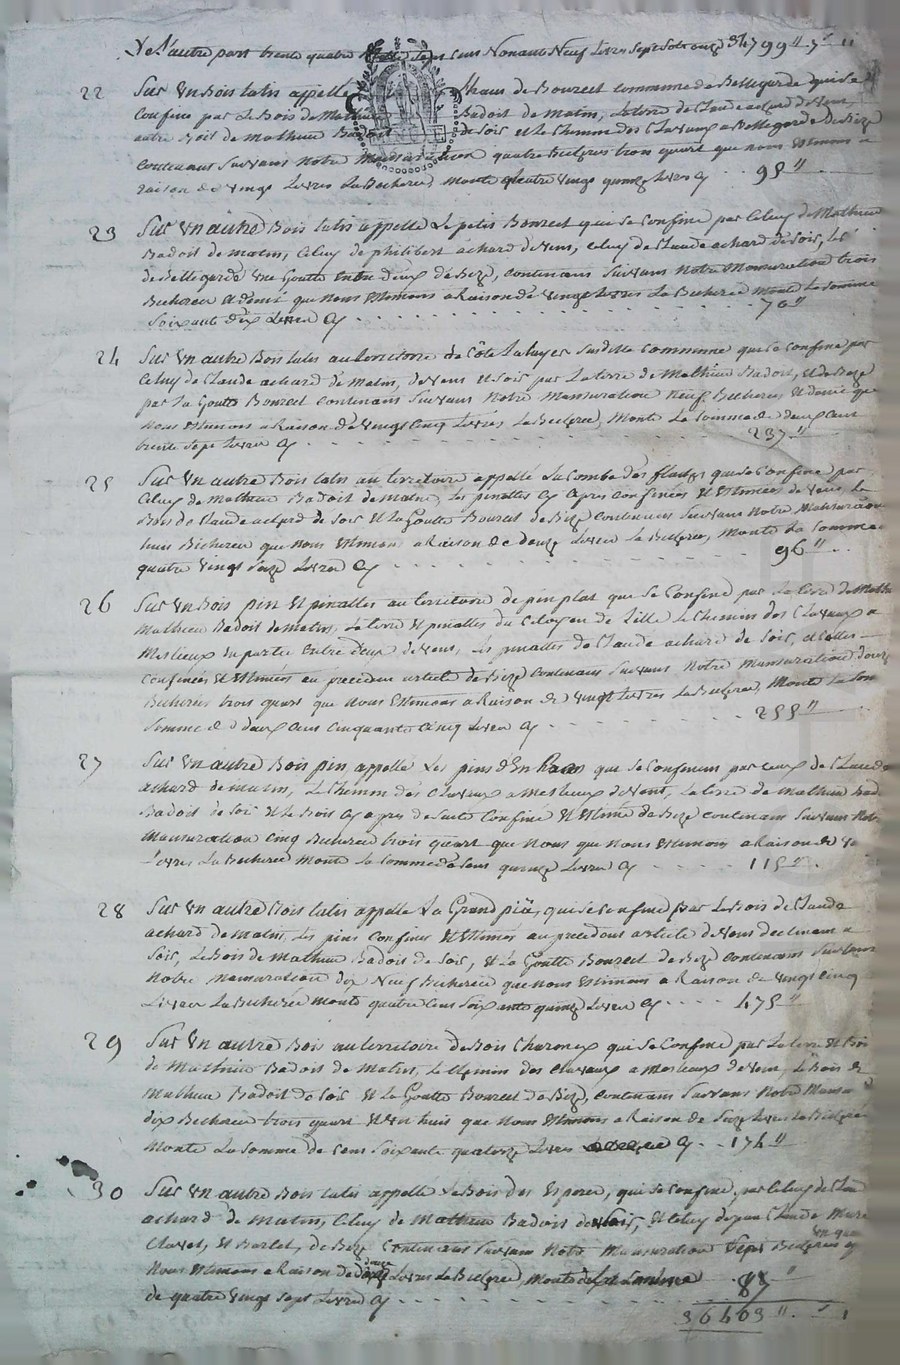 De l'autre part trente quatre mille sept Cens Nonante Neuf Livres Sept Sols onze 34799" 7s 11
22 Sur Un Bois taliz appellé thaus de Bourect Commune de Bellegarde qui Se
Confine par le Bois de Mathieu Badoit de Matin, la terre de Claude achard de Vent,
autre Bois de Mathieu Badoit de Soir et le Chemin des Clavaux a Bellegarde de Bize
Contenant Suivant Notre Mansuration quatre Bicherées trois quart que nous Estimons a
raison de vingt Livres La Bicherée Monte quatre vingt quinze Livres Cy . . 95"
23 Sur Un autre Bois taliz appellé Le petit Bourect qui Se Confine par Celuy de Mathieu
Badoit de Matin, Celuy de philibert achard de Vent, Celuy de Claude achard de Soir, les
de Bellegarde une Goutte Entre deux de Bize, Contenant Suivant Notre Mansuration trois
Bicherées et demie que nous Estimons a Raison de vingt Livres La Bicherée Monte La Somme
Soixante dix Livres Cy . . . . . 70"
24 Sur Un autre Bois taliz au territoire de Côte Susditte Commune qui Se Confine par
Celuy de Claude achard de Matin, de Vent et Soir par La terre de Mathieu Badoit, et de Bize
par La Goutte Bourect Contenant Suivant Notre Mansuration Neuf Bicherées et demie que
Nous Estimons a Raison de vingt Cinq Livres La Bicherée, Monte La Somme de deux Cent
trente Sept Livres Cy . . . . . 237"
25 Sur Un autre Bois taliz au territoire appellé La Combe des flaches qui Se Confine par
Celuy de Mathieu Badoit de Matin, les pinattes Cy apres Confinées et Estimées de Vent, le
Bois de Claude achard de Soir et La Goutte Bourect de Bize Contenant Suivant Notre Mansuration
huit Bicherées que nous Estimons a Raison de douze Livres La Bicherée, Monte La Somme
quatre vingt Seize Livres Cy . . . . . 96"
26 Sur Un Bois pin et pinattes au territoire de pin plat qui Se Confine par La terre de Math
Mathieu Badoit de Matin, La terre et pinattes du Citoyen de Ville Le Chemin des Clavaux a
Meslieux En partie Entre deux de Vent, les pinattes de Claude achard de Soir, et Celles
Confinées et Estimées au precedent article de Bize Contenant Suivant Notre Mansuration douze
Bicherées trois quart que nous Estimons a Raison de vingt Livres La Bicherée, Monte La Som
Somme de deux Cens Cinquante Cinq Livres Cy . . . . . 255"
27 Sur Un autre Bois pin appellé Les pins d'En qui Se Confinent par Ceux de Claude
achard de Matin, Le Chemin des Clavaux a Meslieux de Vent, La terre de Mathieu Bad
Badoit de Soir et le Bois Cy apres de Suite Confiné et Estimé de Bize Contenant Suivant Notre
Mansuration Cinq Bicherées trois quart que Nous que Nous Estimons a Raison de
Livres La Bicherée Monte La Somme de Cent quinze Livres Cy . . . . . 115"
28 Sur Un autre Bois taliz appellé La Grand qui Se Confine par Le Bois de Claude
achard de Matin, les pins Confinés et Estimés au precedent article de Vent declinant a
Soir, Le Bois de Mathieu Badoit de Soir, et La Goutte Bourect de Bize Contenant Suivant
Notre Mansuration dix Neuf Bicherées que nous Estimons a Raison de vingt Cinq
Livres La Bicherée Monte quatre Cens Soixante quinze Livres Cy . . . . 475"
29 Sur Un autre Bois au territoire de Bois Charonex qui Se Confine par La terre et Bois
de Mathieu Badoit de Matin, le Chemin des Clavaux a Meslieux de Vent, Le Bois de
Mathieu Badoit de Soir et La Goutte Bourect de Bize, Contenant Suivant Notre Mansu
dix Bicherées trois quart et Un huit que Nous Estimons a Raison de Seize Livres La Bicherée
Monte La Somme de Cens Soixante quatorze Livres Cy . . 174"
30 Sur Un autre Bois taliz appellé Le Bois des qui Se Confine par Celuy de Claude
achard de Matin, Celuy de Mathieu Badoit de Soir, et Celuy de Jean Claude
Clavet, et Barlet, de Bize Contenant Suivant Notre Mansuration Sept Bicherées Un quart
Nous Estimons a Raison de douze Livres La Bicherée, Monte La Somme 87"
de quatre vingt Sept Livres Cy . . . . .
36403" . s 1